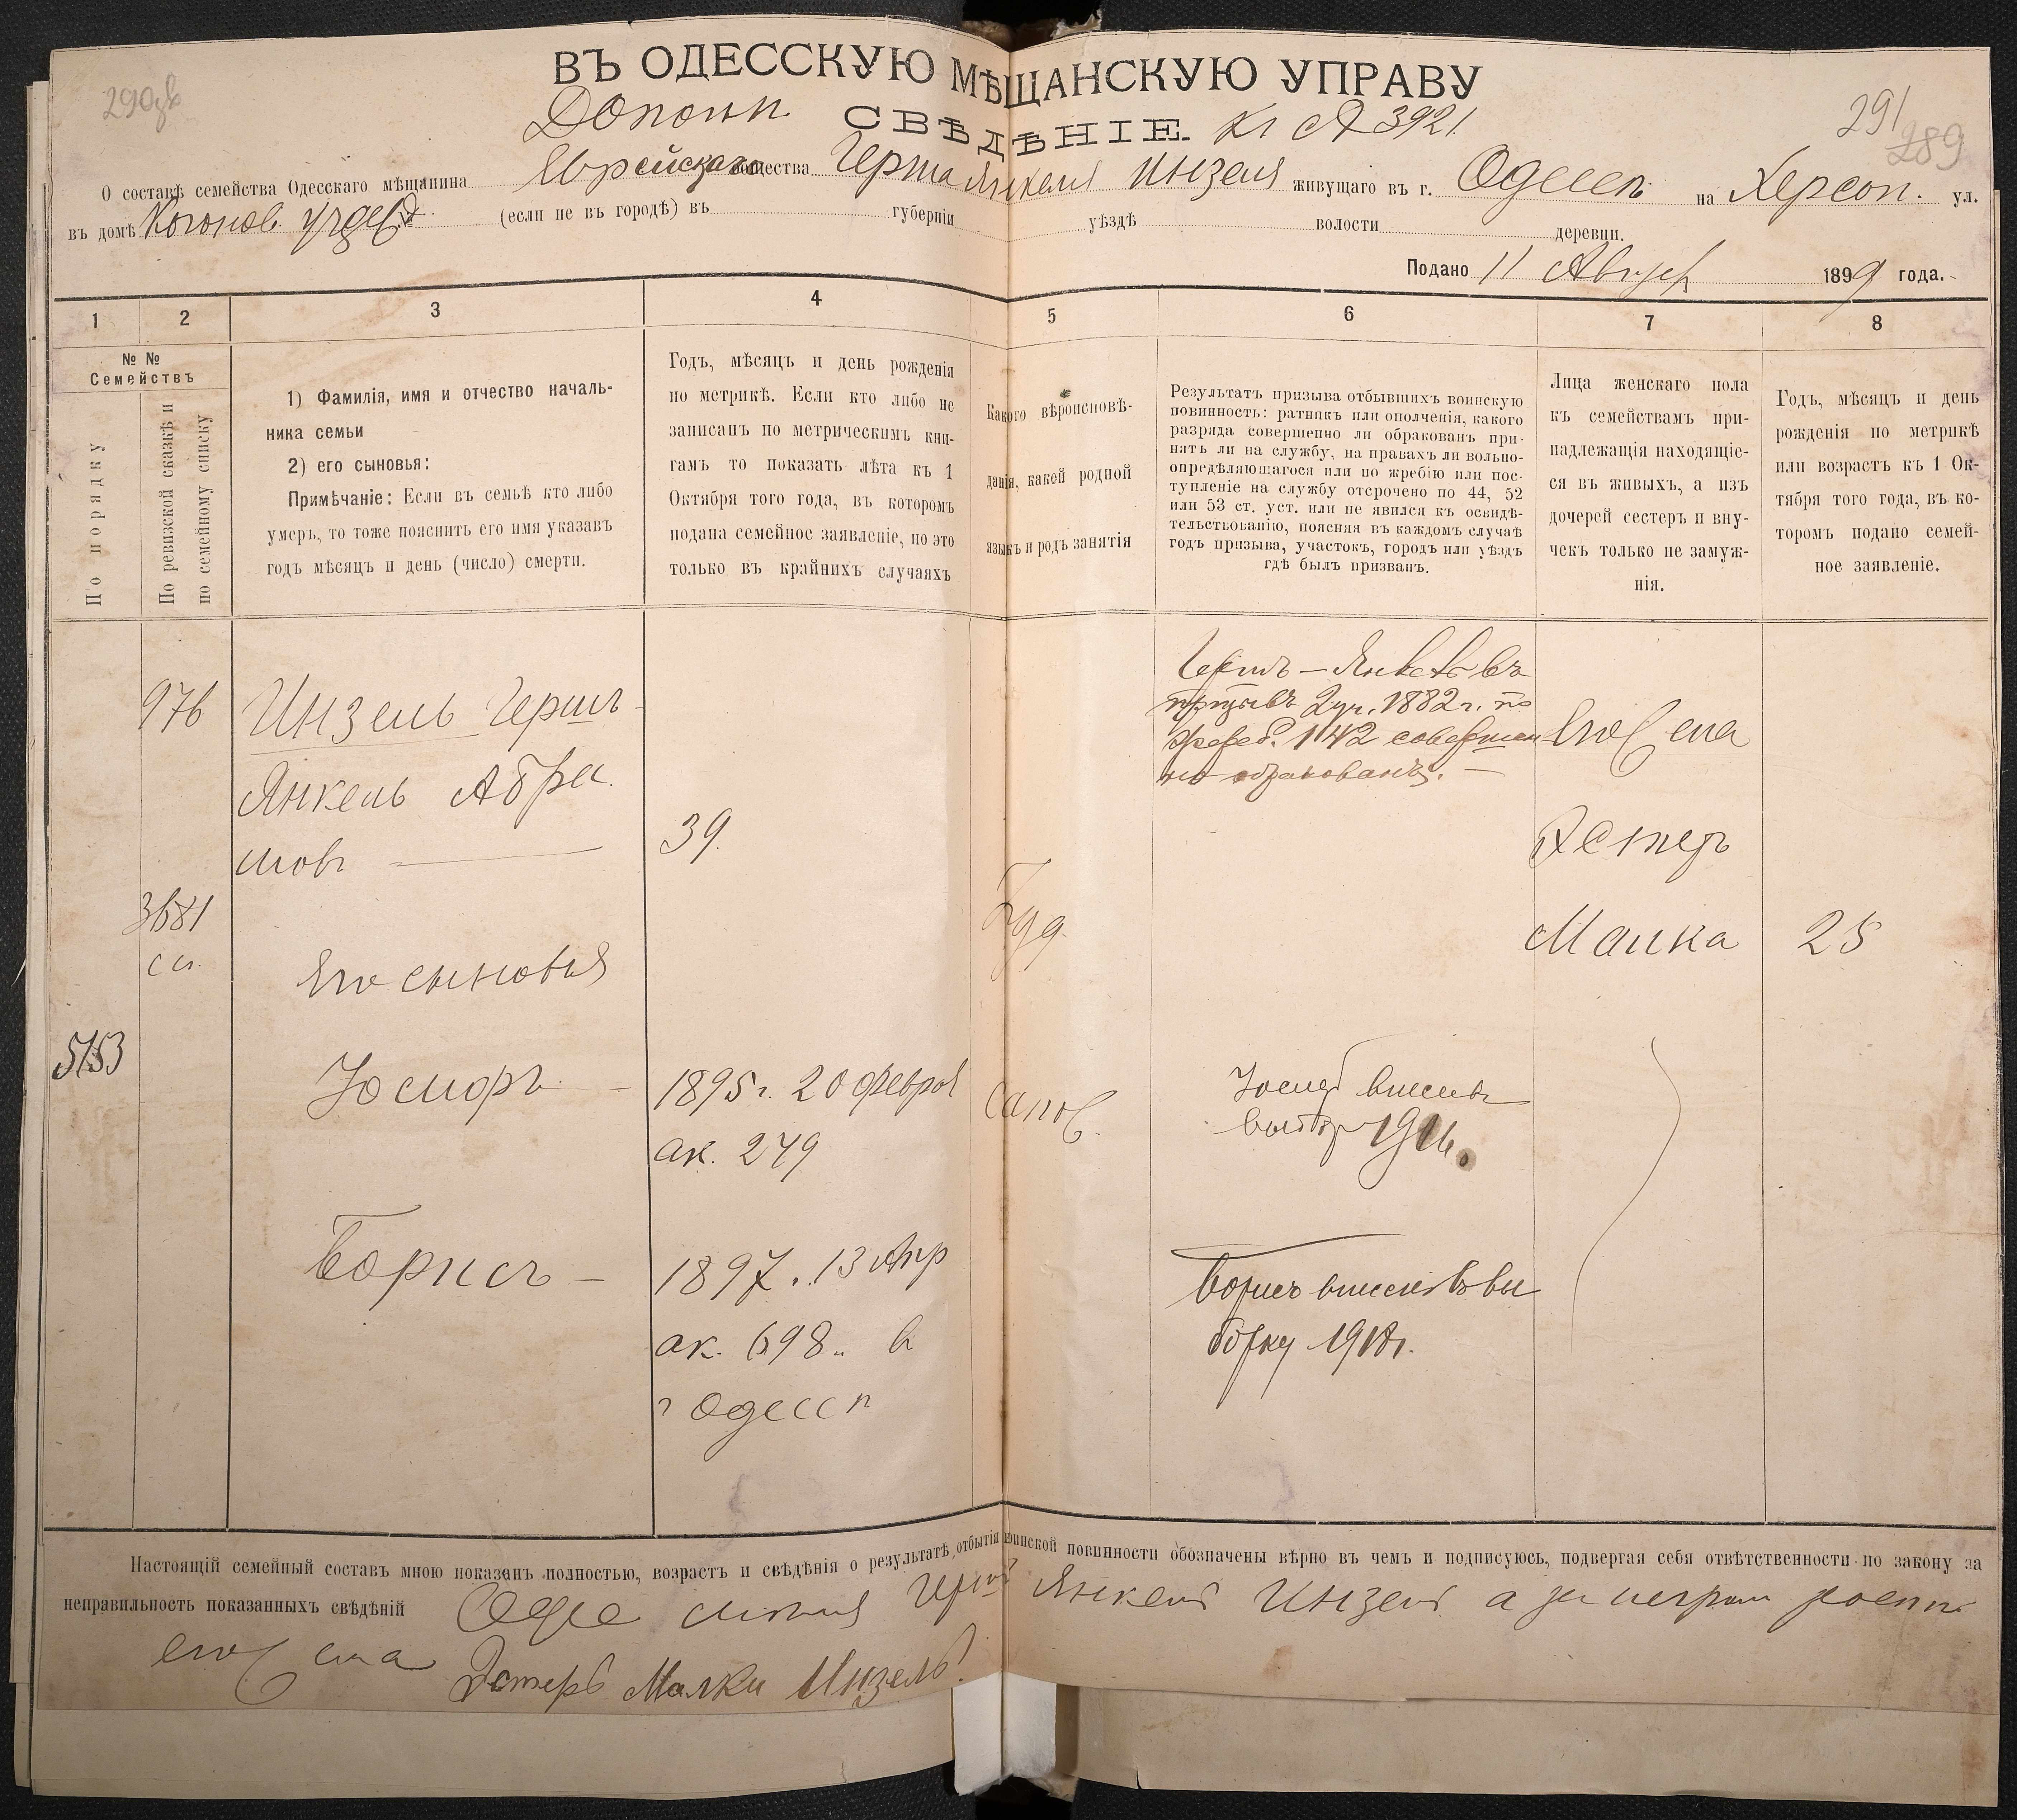 ВЪ ОДЕССКУЮ МѢЩАНСКУЮ УПРАВУ
СВѢДѢНІЕ. 3921
291
289
О составѣ семейства Одесскаго мѣщанина Еврейскаго общества Герша Янкеля Инзеля живущаго въ г. Одессѣ на Херсон. ул.
въ домѣ (если не въ городѣ) въ губерніи уѣздѣ волости деревни.
Подано 11 Август 1899 года.
1 2 3 4 5 6 7 8
№ № Семействъ
По порядку
По ревизской сказкѣ и по семейному списку
1) Фамилія, имя и отчество началь-
ника семьи
2) его сыновья:
Примѣчаніе: Если въ семьѣ кто либо
умеръ, то тоже пояснить его имя указавъ
годъ мѣсяцъ и день (число) смерти.
Годъ, мѣсяцъ и день рожденія
по метрикѣ. Если кто либо не
записанъ по метрическимъ кни-
гамъ то показать лѣта къ 1
Октября того года, въ которомъ
подана семейное заявленіе, но это
только въ крайнихъ случаяхъ
Какого вѣроисповѣ-
данія, какой родной
языкъ и родъ занятія
Результатъ призыва отбывшихъ воинскую
повинность: ратникъ или ополченія, какого
разряда совершенно ли обракованъ при-
нятъ ли на службу, на правахъ ли вольно-
опредѣляющагося или по жребію или пос-
тупленіе на службу отсрочено по 44, 52
или 53 ст. уст. или не явился къ освидѣ-
тельствованію, поясняя въ каждомъ случаѣ
годъ призыва, участокъ, городъ или уѣздъ
гдѣ былъ призванъ.
Лица женскаго пола
къ семействамъ при-
надлежащія находящіе-
ся въ живыхъ, а изъ
дочерей сестеръ и вну-
чекъ только не замуж-
нія.
Годъ, мѣсяцъ и день
рожденія по метрикѣ
или возрастъ къ 1 Ок-
тября того года, въ ко-
торомъ подано семей-
ное заявленіе.
976 Инзель Гершъ
Янкель Абра
мовъ 39.
3681
сп.
Его сыновья
5153
Іосифъ 1895 г. 20 Феврля
ак. 249
Борисъ 1897. 13 Апр
ак. 698. в
г Одессѣ
Іуд.
сапож.
Гершъ-Янкель въ
призывъ 2 уч. 1882 г. по
жереб. 142 совершен
но обракованъ.
Іосиф внесенъ
1916.
Борисъ внесенъ въ вы
борку 1918 г.
Его жена
Естеръ
Малка 25
Настоящій семейный составъ мною показанъ полностью, возрастъ и свѣдѣнія о результатѣ отбытія воинской повинности обозначены вѣрно въ чемъ и подписуюсь, подвергая себя отвѣтственности по закону за
неправильность показанныхъ свѣдѣній Герш Янкель Инзель а за неграм
его жена Эстеръ Малки Инзель.